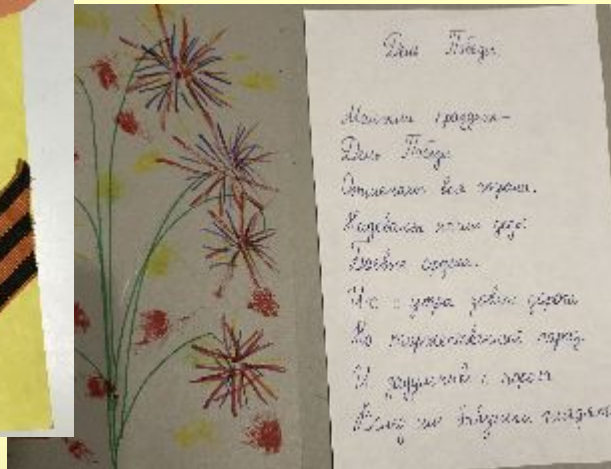 День Победы
Майский праздник –
День Победы
Отмечает вся страна.
Надевают наши деды
Боевые ордена.
Их с утра зовёт дорога
На торжественный парад.
И задумчиво с порога
Вслед им бабушки глядят.